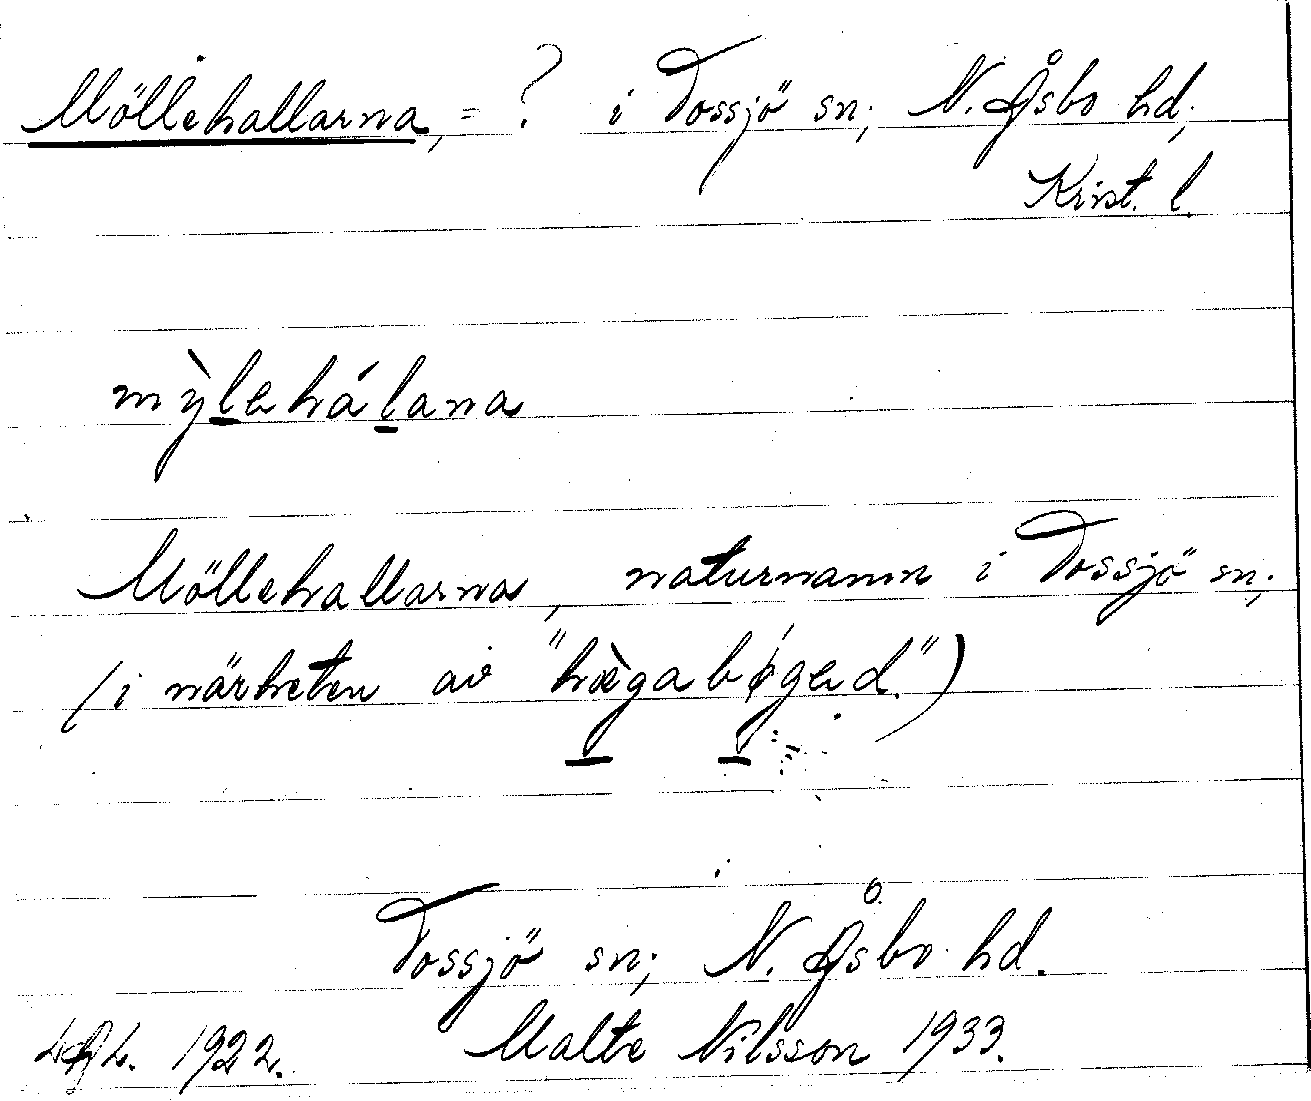 Möllehallarna, = ? i Tossjö sn; N. Åsbo hd;
Krist. l.
mỳlehálana
Möllehallarna, naturnamn i Tossjö sn;
(i närheten av "hæ̀gabǿgad.")
Tossjö sn; N. Åsbo hd.
LAL. 1922. Malte Nilsson 1933.